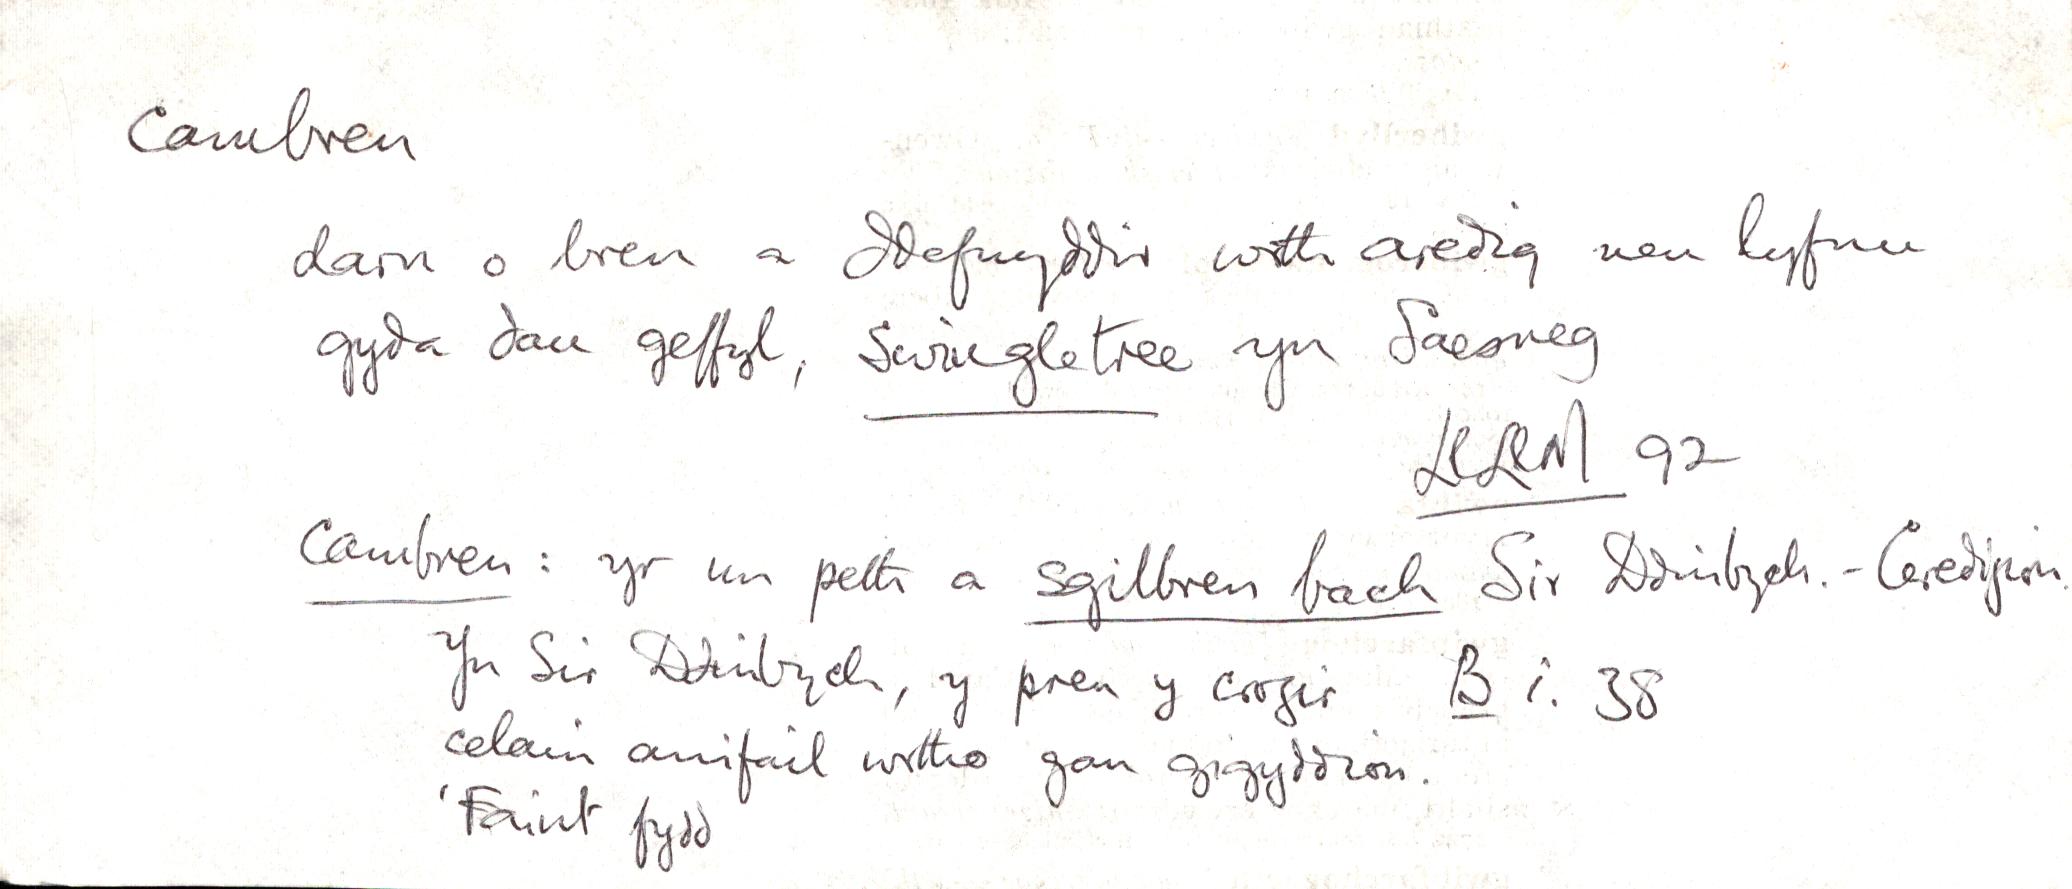 Cambren
darn o bren a ddefnyddir wrth aredig neu lyfnu
gyda dau geffyl, Swingletree yn Saesneg
LlLlM 92
Cambren: yr un peth a sgilbren bach Sir Ddinbych. - Ceredigion.
Yn Sir Ddinbych, y pren y crogir B i. 38
celain anifail wrtho gan gigyddion.
'Faint fydd